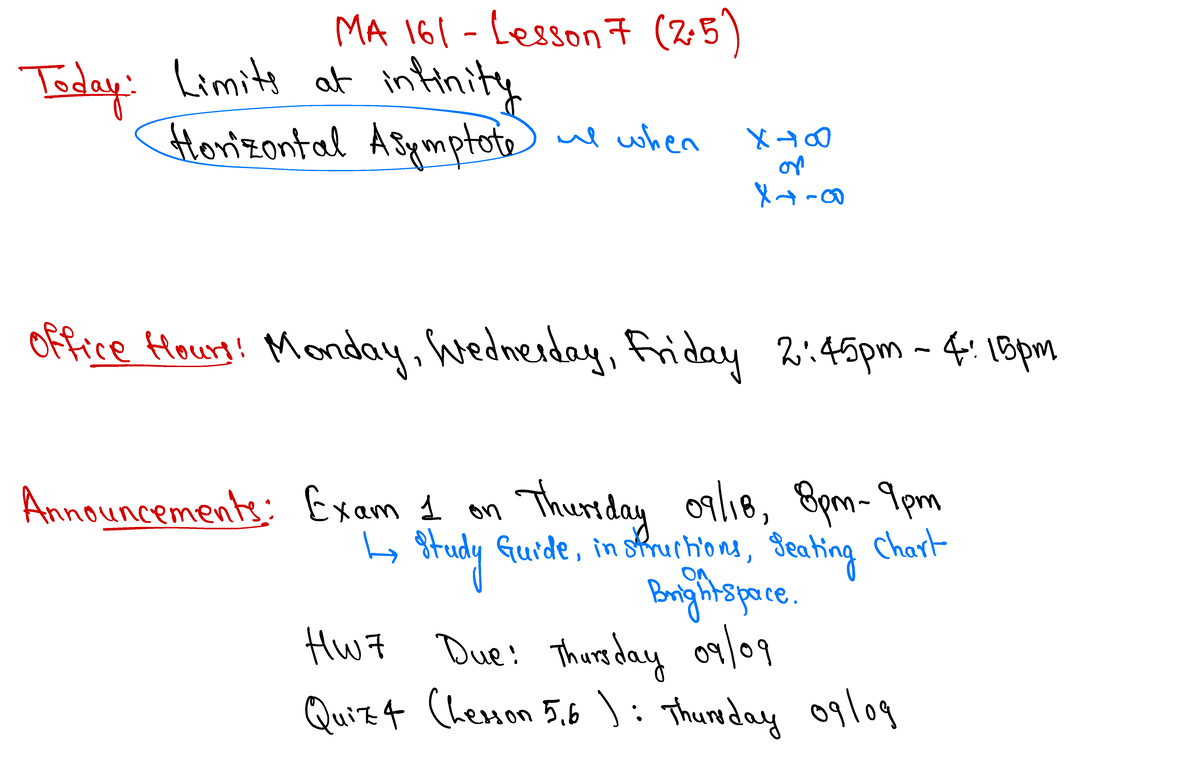 MA 161 - Lesson 7 (2.5)
Today: Limits at infinity
Horizontal Asymptote when x → ∞
or
x → -∞
Office Hours: Monday, Wednesday, Friday 2:45pm - 4:15pm
Announcements: Exam 1 on Thursday 09/18, 8pm - 9pm
↳ Study Guide, instructions, Seating Chart
on
Brightspace.
HW7 Due: Thursday 09/09
Quiz 4 (Lesson 5,6): Thursday 09/09